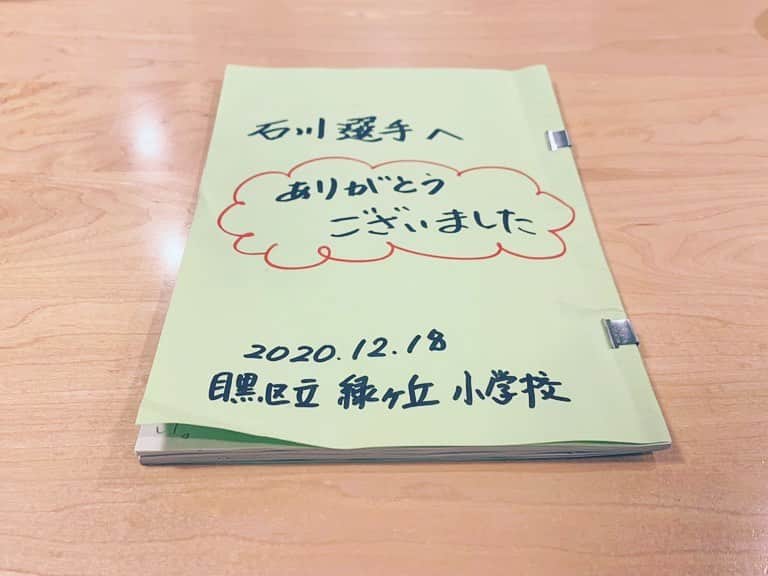 石川選手へ
ありがとう
ございました
2020.12.18
目黒区立 緑ヶ丘 小学校